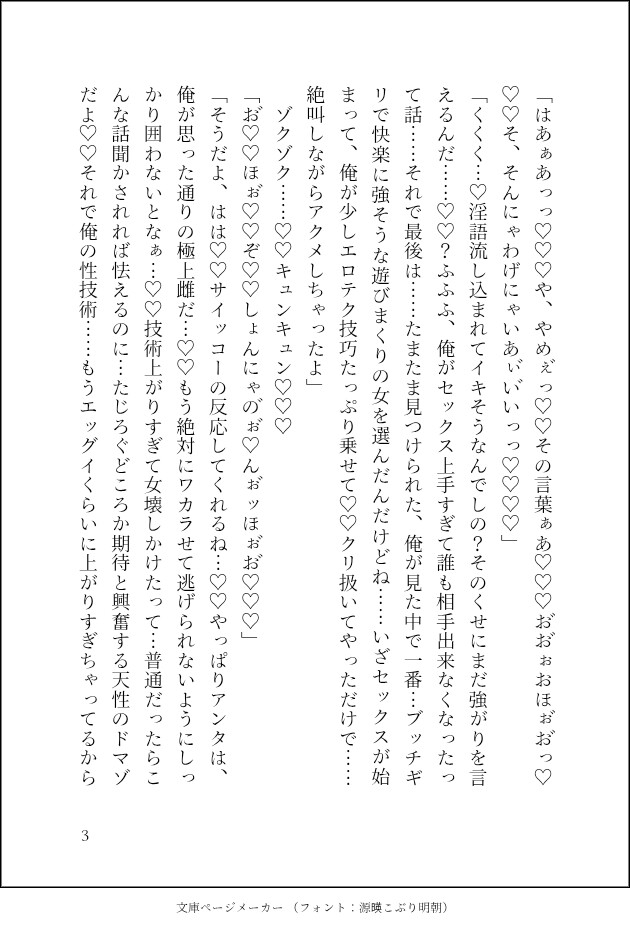 「はあぁあっっ♡♡♡や、やめぇ゛っ♡♡その言葉ぁあ♡♡♡お゛お゛ぉおほぉ゛お゛っ♡
♡♡そ、そんにゃわげにゃいあ゛ぃ゛い゛いっっ♡♡♡♡」
「くくく…♡淫語流し込まれてイキそうなんでしの？そのくせにまだ強がりを言
えるんだ……♡♡？ふふふ、俺がセックス上手すぎて誰も相手出来なくなったっ
て話……それで最後は……たまたま見つけられた、俺が見た中で一番…ブッチギ
リで快楽に強そうな遊びまくりの女を選んだんだけどね……いざセックスが始
まって、俺が少しエロテク技巧たっぷり乗せて♡♡クリ扱いてやっただけで……
絶叫しながらアクメしちゃったよ」
　ゾクゾク……♡♡キュンキュン♡♡♡
「お゛♡♡ほぉ゛♡♡ぞ♡♡しょんにゃの゛ぉ゛♡んぉ゛ッほぉ゛お゛♡♡♡」
「そうだよ、はは♡♡サイッコーの反応してくれるね…♡♡やっぱりアンタは、
俺が思った通りの極上雌だ…♡♡もう絶対にワカラせて逃げられないようにしっ
かり囲わないとなぁ…♡♡技術上がりすぎて女壊しかけたって…普通だったらこ
んな話聞かされれば怯えるのに…たじろぐどころか期待と興奮する天性のドマゾ
だよ♡♡それで俺の性技術……もうエッグイくらいに上がりすぎちゃってるから
3
文庫ページメーカー（フォント：源暎こぶり明朝）